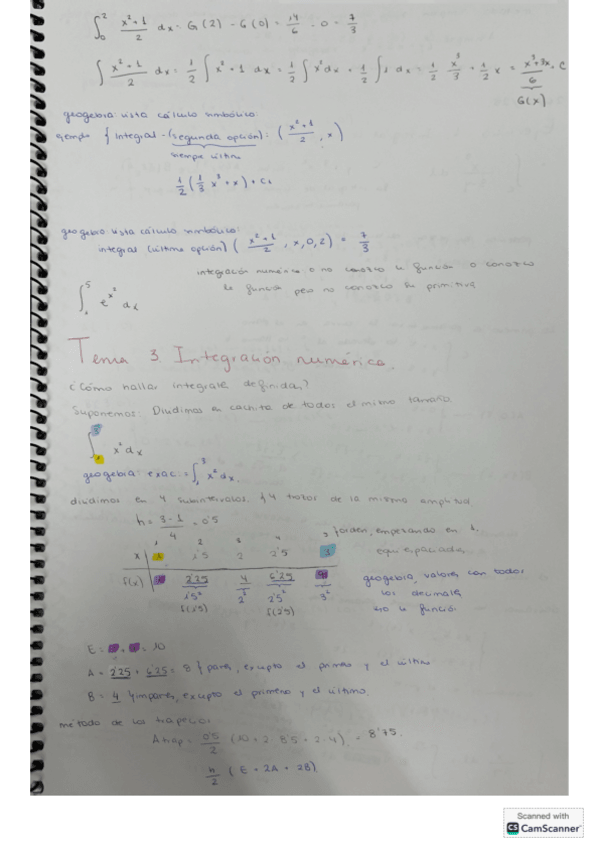 ∫₀² (x²+1)/2 dx = G(2) - G(0) = 14/6 - 0 = 7/3
∫ (x²+1)/2 dx = 1/2 ∫ x²+1 dx = 1/2 ∫ x² dx + 1/2 ∫ 1 dx = 1/2 x³/3 + 1/2 x = (x³+3x)/6 + C
G(x)
geogebra vista cálculo simbólico:
ejemplo { integral - (segunda opción) = ( (x²+1)/2 , x)
siempre última
1/2 (1/3 x³ + x) + C₁
geogebra vista cálculo simbólico:
integral (última opción) ( (x²+1)/2 , x, 0, 2) = 7/3
integración numérica o no conozco la función o conozco
la función pero no conozco su primitiva
∫₁⁵ e^x² dx
Tema 3. Integración numérica.
¿Cómo hallar integrales definidas?
Suponemos: Dividimos en cachitos de todos el mismo tamaño
∫₁³ x² dx
geogebra: exac = ∫₁³ x² dx.
dividimos en 4 subintervalos. 4 trozos de la misma amplitud
h = (3-1)/4 = 0'5
1 2 3 4 5 orden, empezando en 1.
x | 1 1'5 2 2'5 3 equiespaciado
f(x) | 2'25 4 6'25 9 geogebra, valores con todos
1'5² 2² 2'5² 3² los decimales
f(1'5) f(2'5) no la función
E = 10
A = 2'25 + 6'25 = 8 { pares, excepto el primero y el último
B = 4 { impares, excepto el primero y el último.
método de los trapecios
A trap = 0'5/2 (10 + 2·8'5 + 2·4) = 8'75.
h/2 (E + 2A + 2B)
Scanned with
CS CamScanner